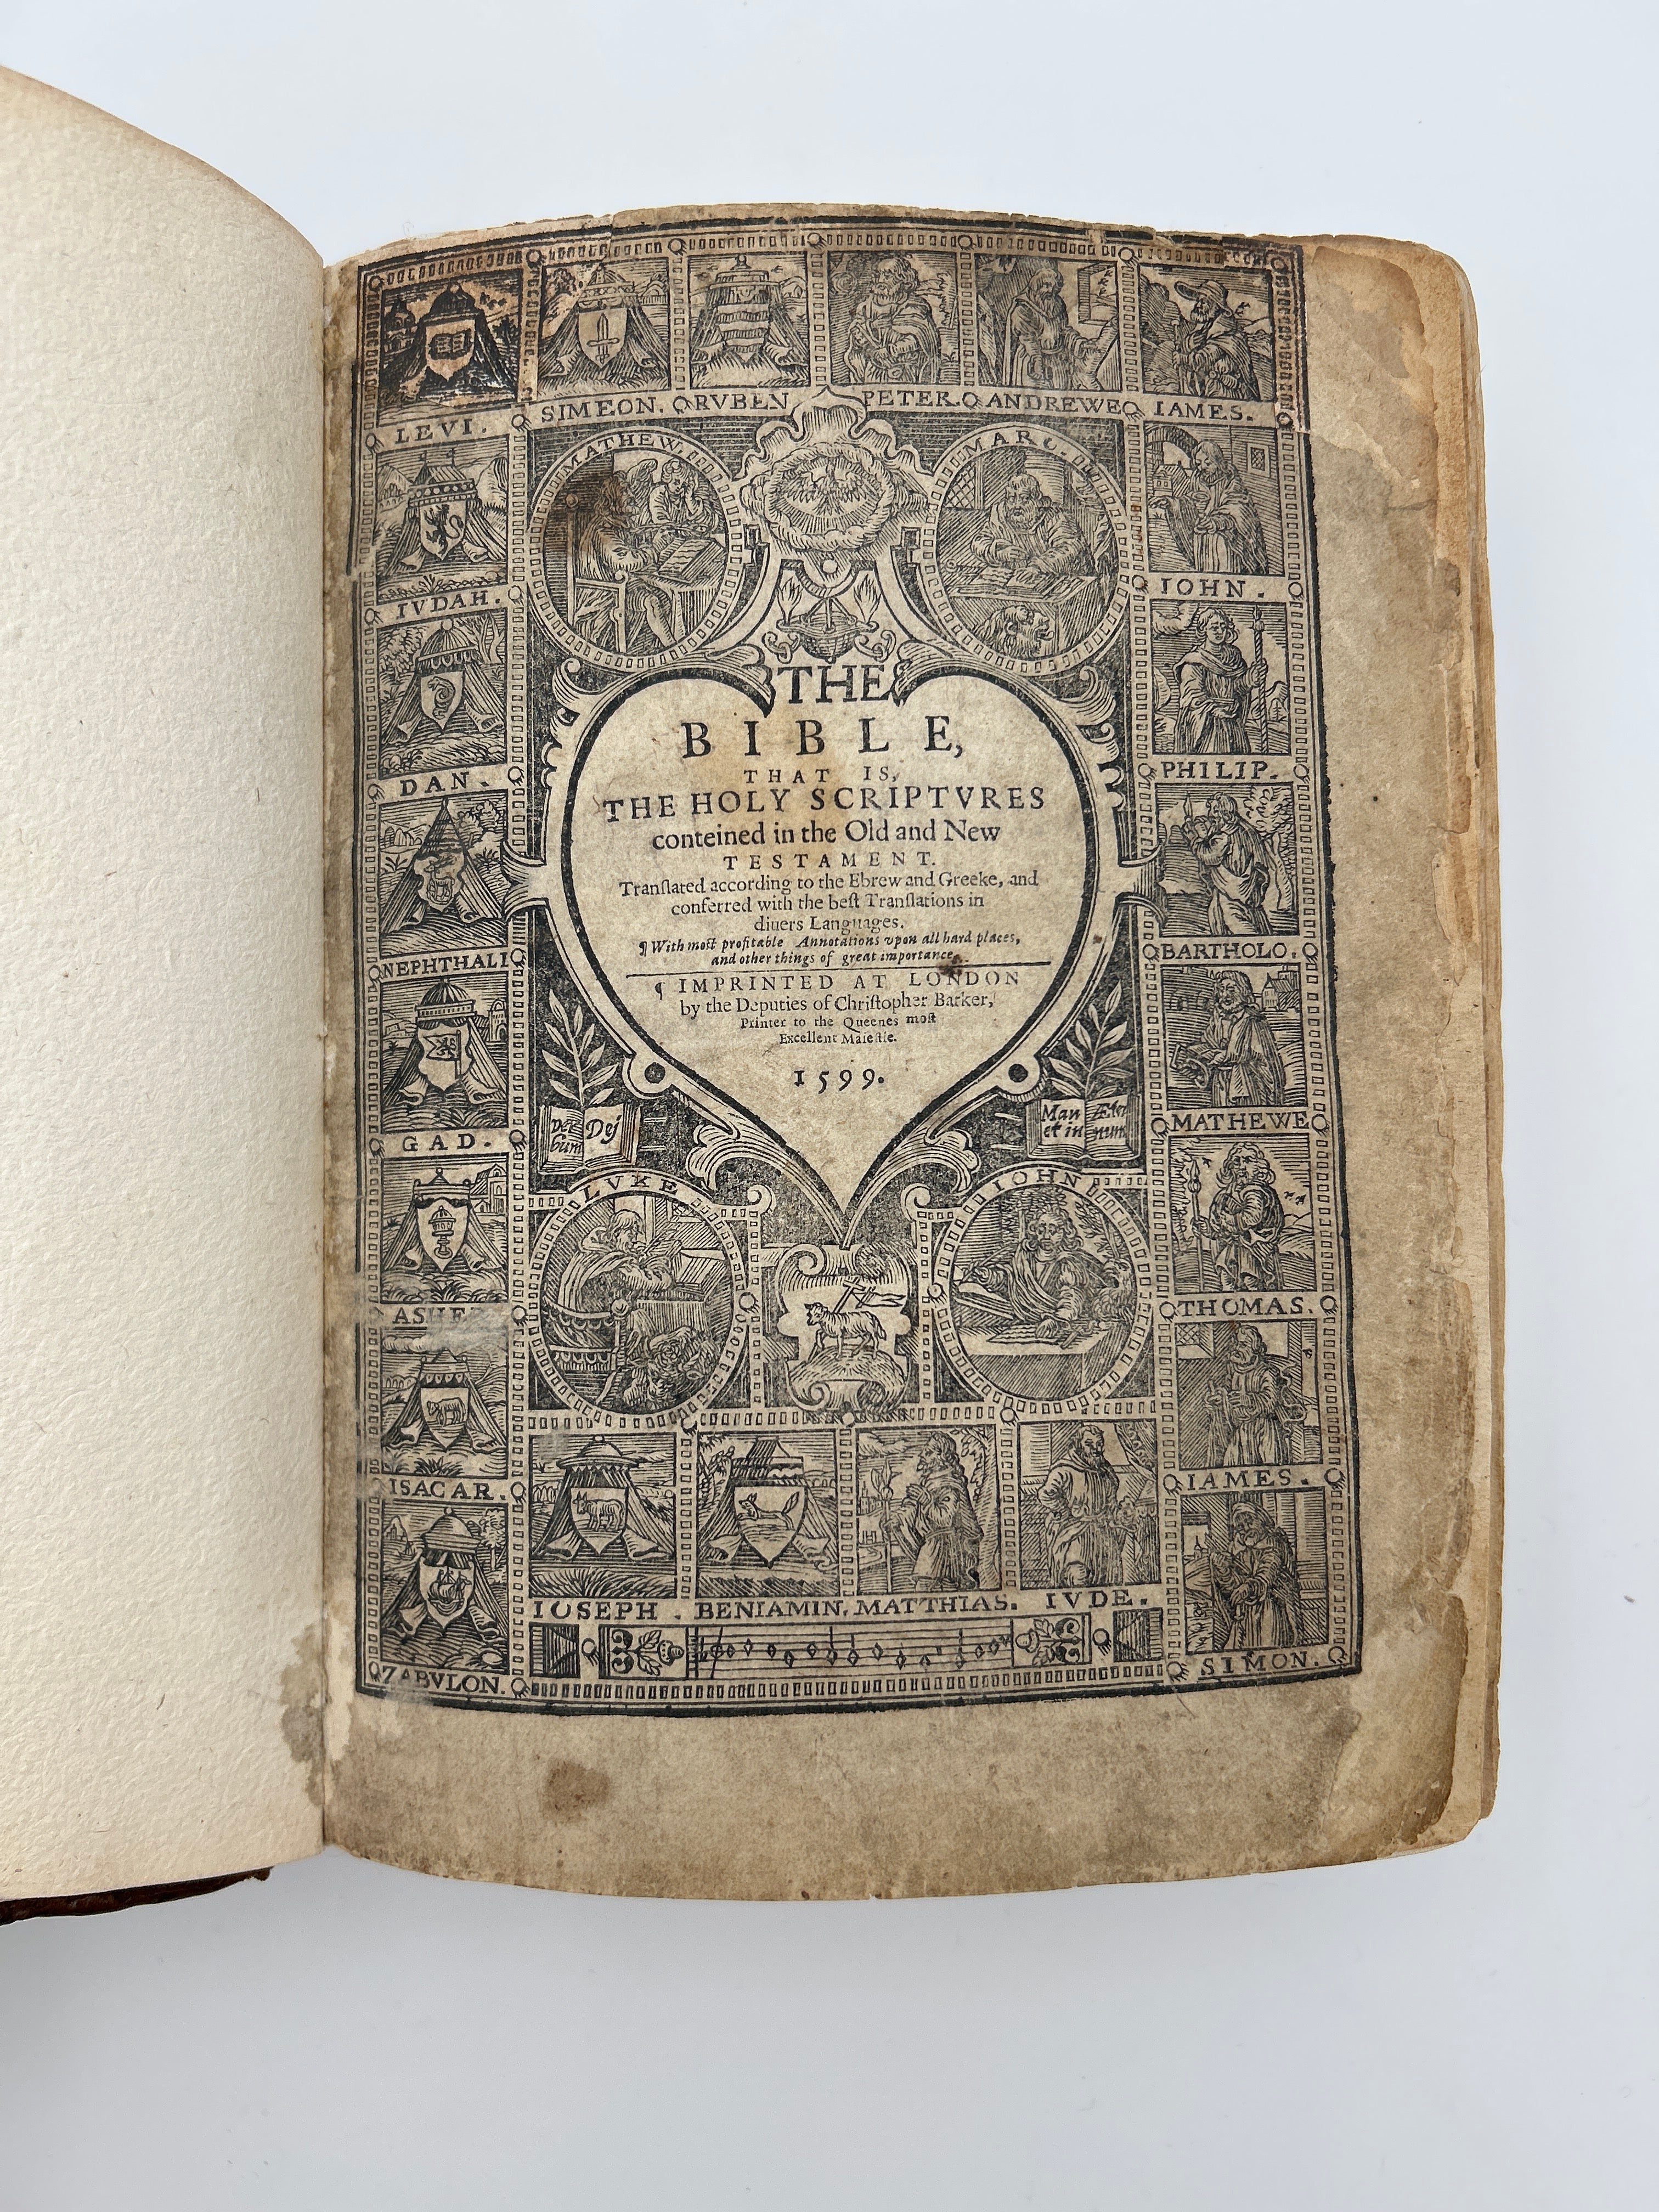 LEVI.
SIMEON.
RVBEN
PETER.
ANDREWE
IAMES.
MATHEW.
MARC.
IVDAH.
IOHN.
DAN.
PHILIP.
NEPHTHALI
BARTHOLO.
GAD.
MATHEWE
THE
BIBLE,
THAT IS,
THE HOLY SCRIPTVRES
conteined in the Old and New
TESTAMENT.
Tranſlated according to the Ebrew and Greeke, and
conferred with the beſt Tranſlations in
diuers Languages.
¶ With moſt profitable Annotations vpon all hard places,
and other things of great importance.
¶ IMPRINTED AT LONDON
by the Deputies of Chriſtopher Barker,
Printer to the Queenes moſt
Excellent Maieſtie.
1599.
Dej
bum
Man
et in
num
LVKE
IOHN
ASHE
THOMAS.
ISACAR.
IAMES.
IOSEPH.
BENIAMIN.
MATTHIAS.
IVDE.
ZABVLON.
SIMON.